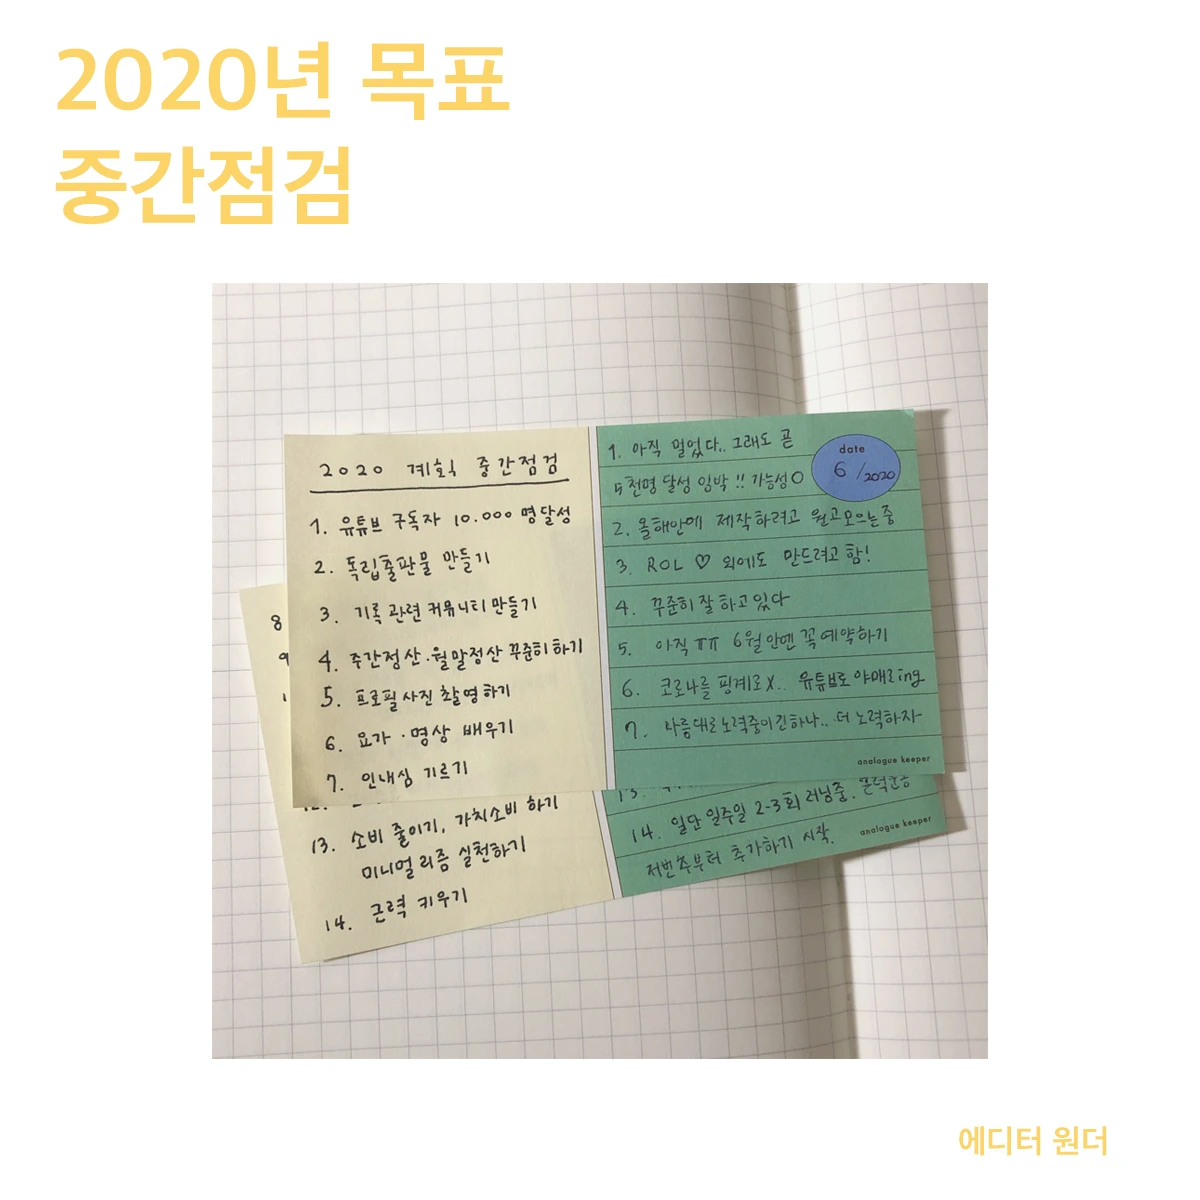 2020년 목표
중간점검
2020 계획 중간점검
1. 유튜브 구독자 10.000 명 달성
2. 독립출판물 만들기
3. 기록 관련 커뮤니티 만들기
4. 주간정산·월말정산 꾸준히 하기
5. 프로필 사진 촬영하기
6. 요가·명상 배우기
7. 인내심 기르기
date
6/2020
1. 아직 멀었다.. 그래도 곧
5천명 달성 임박!! 가능성O
2. 올해안에 제작하려고 원고모으는중
3. ROL ♡ 외에도 만드려고 함!
4. 꾸준히 잘 하고 있다
5. 아직 ㅠㅠ 6월 안엔 꼭 예약하기
6. 코로나를 핑계로X.. 유튜브로 야매로ing
7. 나름대로 노력중이긴하나.. 더 노력하자
analogue keeper
8
9
1
12.
13. 소비 줄이기, 가치소비 하기
미니멀리즘 실천하기
14. 근력 키우기
13.
14. 일단 일주일 2-3회 러닝중. 근력운동
저번주부터 추가하기 시작.
analogue keeper
에디터 원더